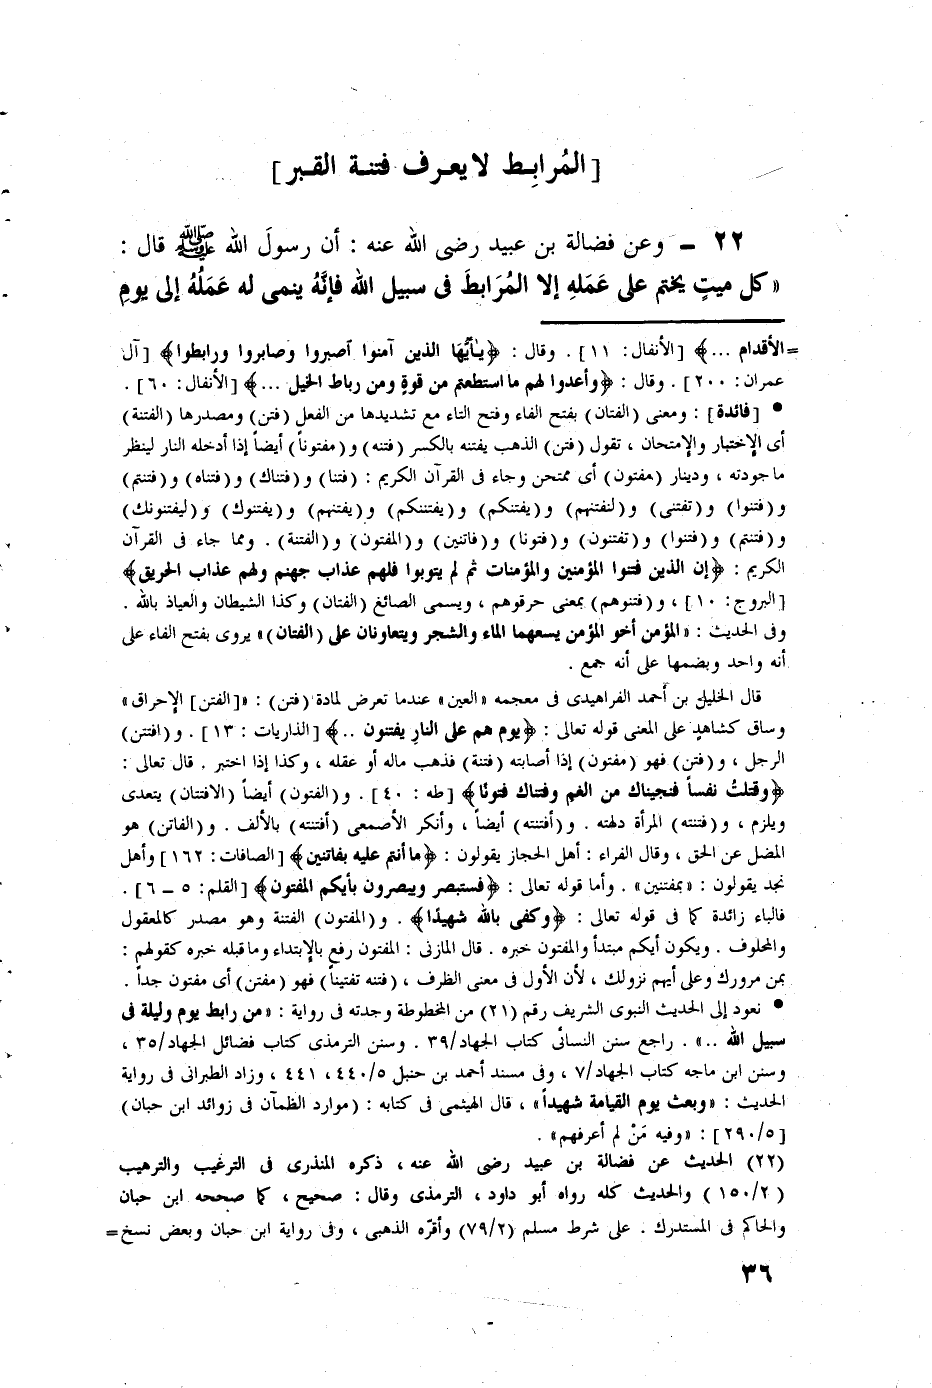 [ المُرابِط لا يعرف فتنة القبر ]
٢٢ – وعن فضالة بن عبيد رضى الله عنه : أن رسولَ الله ﷺ قال :
« كل ميتٍ يختم على عَمَلهِ إلا المُرَابطَ فى سبيل الله فإنَّهُ ينمى له عَمَلُهُ إلى يومِ
=الأقدام ...﴾ [الأنفال: ١١] . وقال : ﴿يـٰأيُّهَا الذين آمنوا آصبروا وصابروا ورابطوا﴾ [آل
عمران: ٢٠٠] . وقال : ﴿وأعدوا لهم ما استطعتم من قوةٍ ومن رباط الخيل ...﴾ [الأنفال: ٦٠] .
● [فائدة] : ومعنى (الفتان) بفتح الفاء وفتح التاء مع تشديدها من الفعل (فتن) ومصدرها (الفتنة)
أى الإختبار والإمتحان ، تقول (فتن) الذهب يفتنه بالكسر (فتنه) و(مفتوناً) أيضاً إذا أدخله النار لينظر
ما جودته ، ودينار (مفتون) أى ممتحن وجاء فى القرآن الكريم : (فتنا) و(فتناك) و(فتناه) و(فتنتم)
و(فتنوا) و(تفتنى) و(لنفتنهم) و(يفتنكم) و(يفتننكم) و(يفتنهم) و(يفتنوك) و(ليفتنونك)
و(فتنتم) و(فتنوا) و(تفتنون) و(فتونا) و(فاتنين) و(المفتون) و(الفتنة) . ومما جاء فى القرآن
الكريم : ﴿إن الذين فتنوا المؤمنين والمؤمنات ثم لم يتوبوا فلهم عذاب جهنم ولهم عذاب الحريق﴾
[البروج: ١٠] ، و(فتنوهم) بمعنى حرقوهم ، ويسمى الصائغ (الفتان) وكذا الشيطان والعياذ بالله .
وفى الحديث : «المؤمن أخو المؤمن يسعهما الماء والشجر ويتعاونان على (الفتان)» يروى بفتح الفاء على
أنه واحد وبضمها على أنه جمع .
قال الخليل بن أحمد الفراهيدى فى معجمه «العين» عندما تعرض لمادة (فتن) : «[الفتن] الإحراق»
وساق كشاهدٍ على المعنى قوله تعالى : ﴿يوم هم على النار يفتنون ..﴾ [الذاريات : ١٣] . و(افتتن)
الرجل ، و(فتن) فهو (مفتون) إذا أصابته (فتنة) فذهب ماله أو عقله ، وكذا إذا اختبر . قال تعالى :
﴿وقتلتُ نفساً فنجيناك من الغم وفتناك فتونًا﴾ [طه : ٤٠] . و(الفتون) أيضاً (الافتتان) يتعدى
ويلزم ، و(فتنته) المرأة دلهته . و(أفتنته) أيضاً ، وأنكر الأصمعى (أفتنته) بالألف . و(الفاتن) هو
المضل عن الحق ، وقال الفراء : أهل الحجاز يقولون : ﴿ما أنتم عليه بفاتنين﴾ [الصافات: ١٦٢] وأهل
نجد يقولون : «بمفتنين» . وأما قوله تعالى : ﴿فستبصر ويبصرون بأيكم المفتون﴾ [القلم: ٥ – ٦] .
فالباء زائدة كما فى قوله تعالى : ﴿وكفى بالله شهيدًا﴾ . و(المفتون) الفتنة وهو مصدر كالمعقول
والمخلوف . ويكون أيكم مبتدأ والمفتون خبره . قال المازنى : المفتون رفع بالإبتداء وما قبله خبره كقولهم :
بمن مرورك وعلى أيهم نزولك ، لأن الأول فى معنى الظرف ، (فتنه تفتيناً) فهو (مفتن) أى مفتون جداً .
● نعود إلى الحديث النبوى الشريف رقم (٢١) من المخطوطة وجدته فى رواية : «من رابط يوم وليلة فى
سبيل الله ..» . راجع سنن النسائى كتاب الجهاد/٣٩ . وسنن الترمذى كتاب فضائل الجهاد/٣٥ ،
وسنن ابن ماجه كتاب الجهاد/٧ ، وفى مسند أحمد بن حنبل ٤٤٠/٥ ، ٤٤١ ، وزاد الطبرانى فى رواية
الحديث : «وبعث يوم القيامة شهيداً» ، قال الهيثمى فى كتابه : (موارد الظمآن فى زوائد ابن حبان)
[٢٩٠/٥] : «وفيه مَنْ لم أعرفهم» .
(٢٢) الحديث عن فضالة بن عبيد رضى الله عنه ، ذكره المنذرى فى الترغيب والترهيب
(١٥٠/٢) والحديث كله رواه أبو داود ، الترمذى وقال : صحيح ، كما صححه ابن حبان
والحاكم فى المستدرك . على شرط مسلم (٧٩/٢) وأقرّه الذهبى ، وفى رواية ابن حبان وبعض نسخ=
٣٦